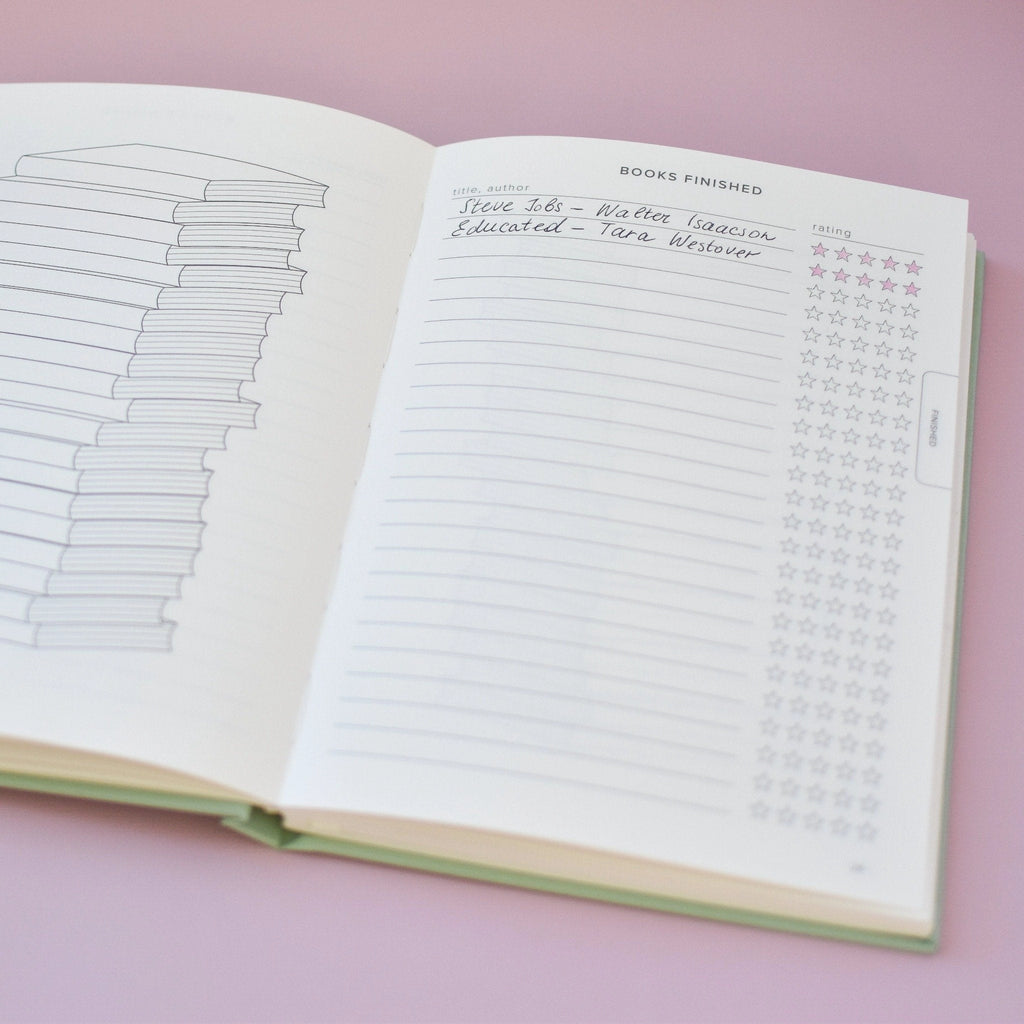 BOOKS FINISHED
title, author
rating
Steve Jobs – Walter Isaacson
Educated – Tara Westover
FINISHED